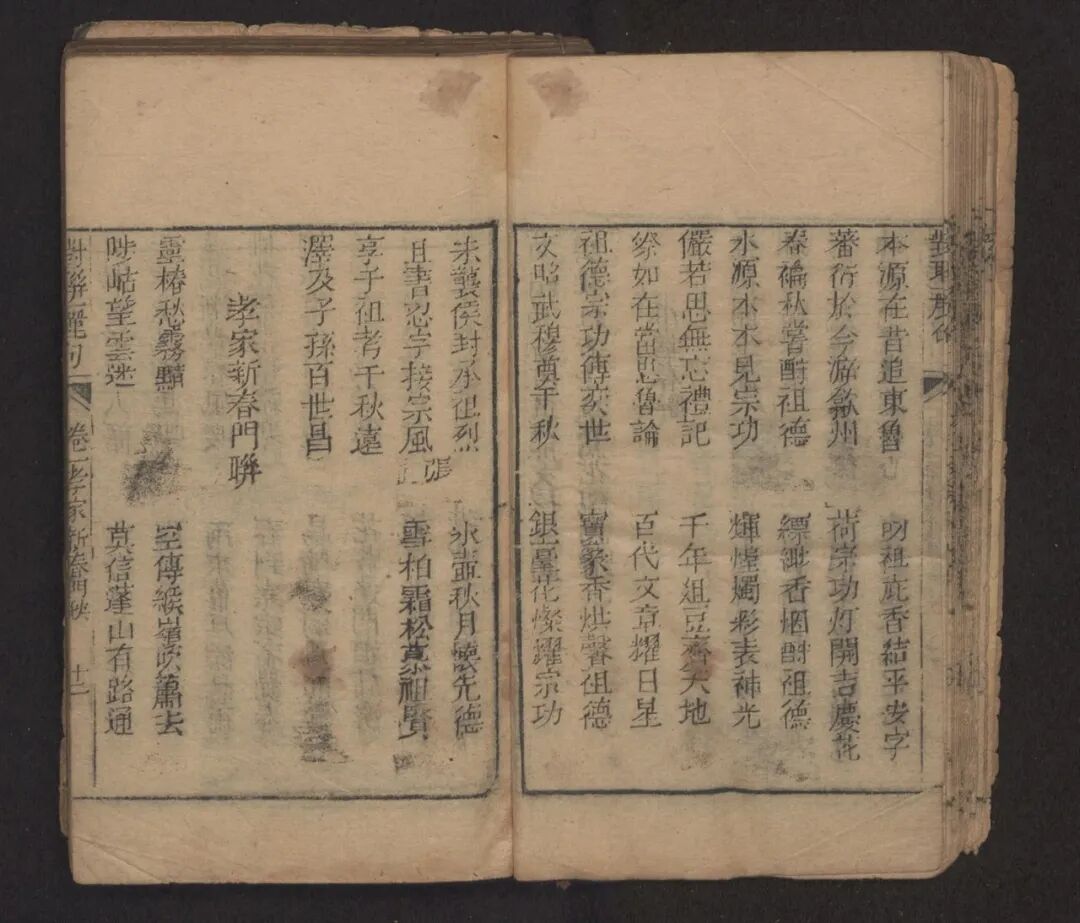 本源在昔追東魯
明祖庇香結平安字
蕃衍於今溯歙州
荷宗功灯開吉慶花
春禴秋嘗酧祖德
縹緲香烟酧祖德
水源木本見宗功
輝煌燭彩表神光
儼若思無忘禮記
千年俎豆齊天地
祭如在當思魯論
百代文章耀日星
祖德宗功傳奕世
寶篆香烘馨祖德
文昭武穆奠千秋
銀臺花燦耀宗功
未襲侯封承祖烈
冰壺秋月懷先德
且書忍字接宗風
張
雪柏霜松慕祖賢
享子祖考千秋遠
澤及子孫百世昌
孝家新春門聨
靈椿愁霧黯
空傳緱嶺吹簫去
陟岵望雲迷
莫信蓬山有路通
對聨麗句
卷一孝家新春門聨
十二